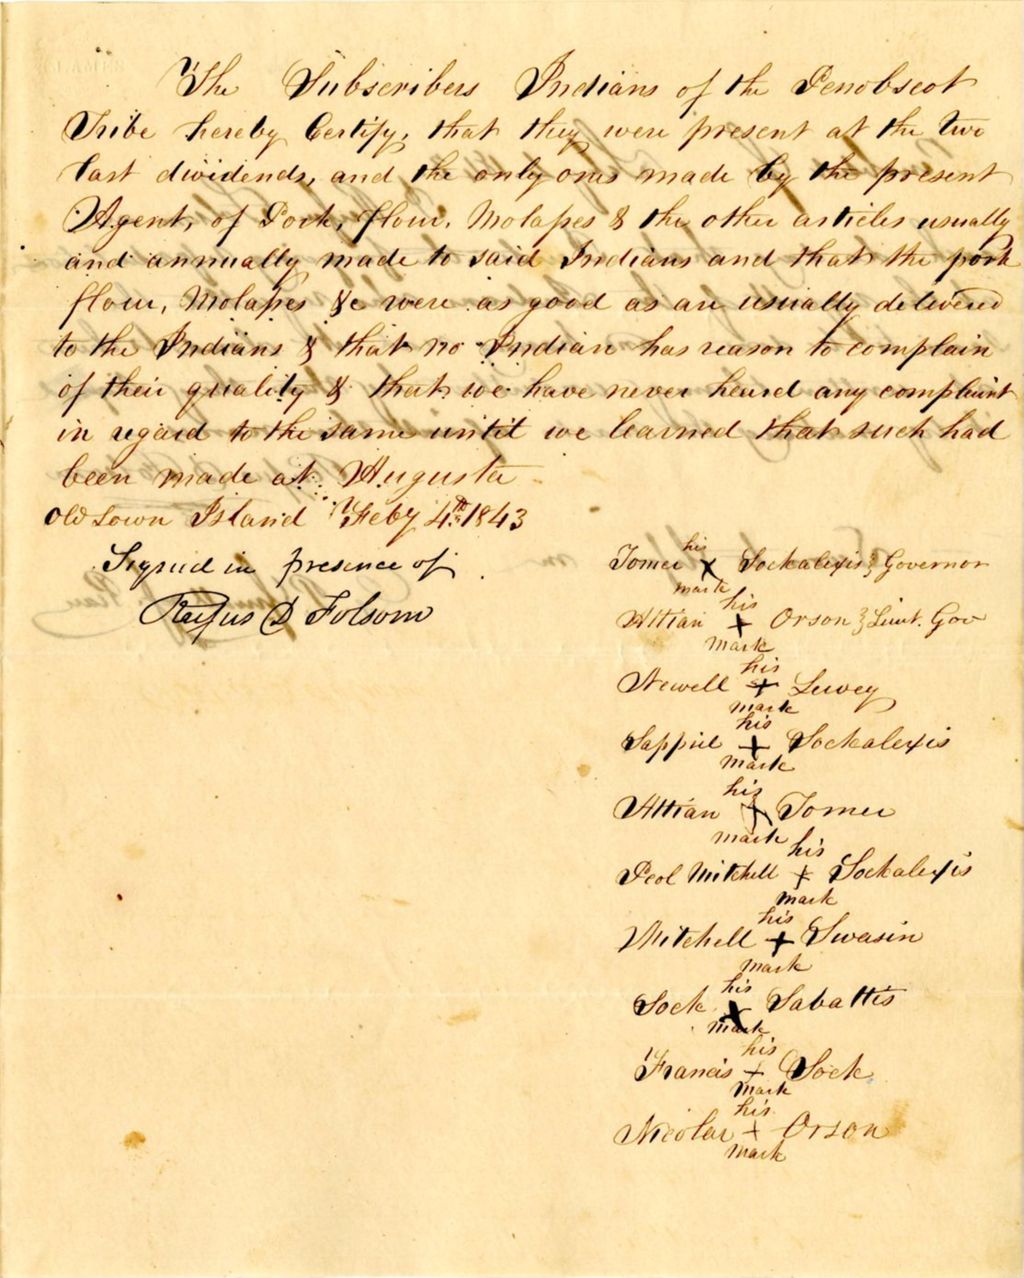 The Subscribers Indians of the Penobscot
Tribe hereby Certify, that they were present at the two
last dividends, and the only ones made by the present
Agent, of Pork, flour, Molasses & the other articles usually
and annually made to said Indians and that the pork
flour, Molasses &c were as good as are usually delivered
to the Indians & that no Indian has reason to complain
of their quality & that we have never heard any complaint
in regard to the same until we learned that such had
been made at Augusta
Old Town Island Feby 4th 1843
Signed in presence of
Rufus D Folsom
his
Tomer X Sockalexis } Governor
mark
his
Attian + Orson } Lieut. Gov
mark
his
Newell + Lewey
mark
his
Sappiel + Sockalexis
mark
his
Attian + Tomer
mark
his
Peol Mitchell + Sockalexis
mark
his
Mitchell + Swasin
mark
his
Sock X Sabattis
mark
his
Francis + Sock
mark
his
Nicolar + Orson
mark